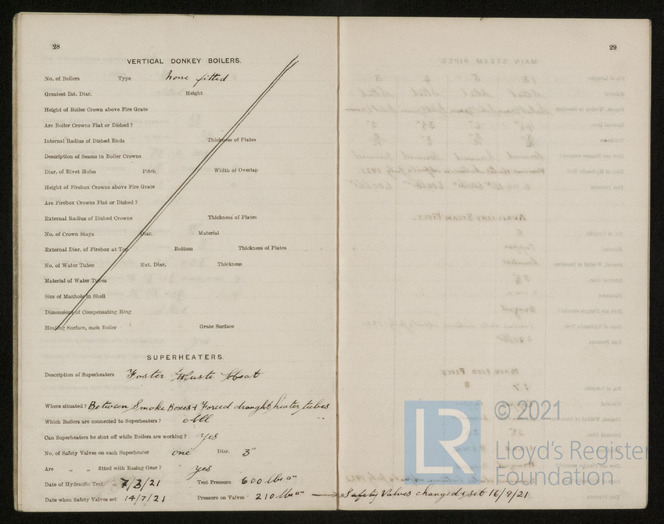 28
VERTICAL DONKEY BOILERS.
No. of Boilers Type None fitted
Greatest Int. Diar. Height
Height of Boiler Crown above Fire Grate
Are Boiler Crowns Flat or Dished?
Internal Radius of Dished Ends Thickness of Plates
Description of Seams in Boiler Crowns
Diar. of Rivet Holes Pitch Width of Overlap
Height of Firebox Crowns above Fire Grate
Are Firebox Crowns Flat or Dished?
External Radius of Dished Crowns Thickness of Plates
No. of Crown Stays Diar. Material
External Diar. of Firebox at Top Bottom Thickness of Plates
No. of Water Tubes Ext. Diar. Thickness
Material of Water Tubes
Size of Manhole in Shell
Dimensions of Compensating Ring
Heating Surface, each Boiler Grate Surface
SUPERHEATERS.
Description of Superheaters Foster Waste Heat
Where situated? Between Smoke Boxes & Forced draught heater tubes
Which Boilers are connected to Superheaters? All
Can Superheaters be shut off while Boilers are working? Yes
No. of Safety Valves on each Superheater one Diar. 3"
Are " " fitted with Easing Gear? Yes
Date of Hydraulic Test 7/3/21 Test Pressure 600 lbs □"
Date when Safety Valves set 14/7/21 Pressure on Valves 210 lbs □"
29
Safety Valves changed & set 16/9/21
LR
© 2021
Lloyd's Register
Foundation